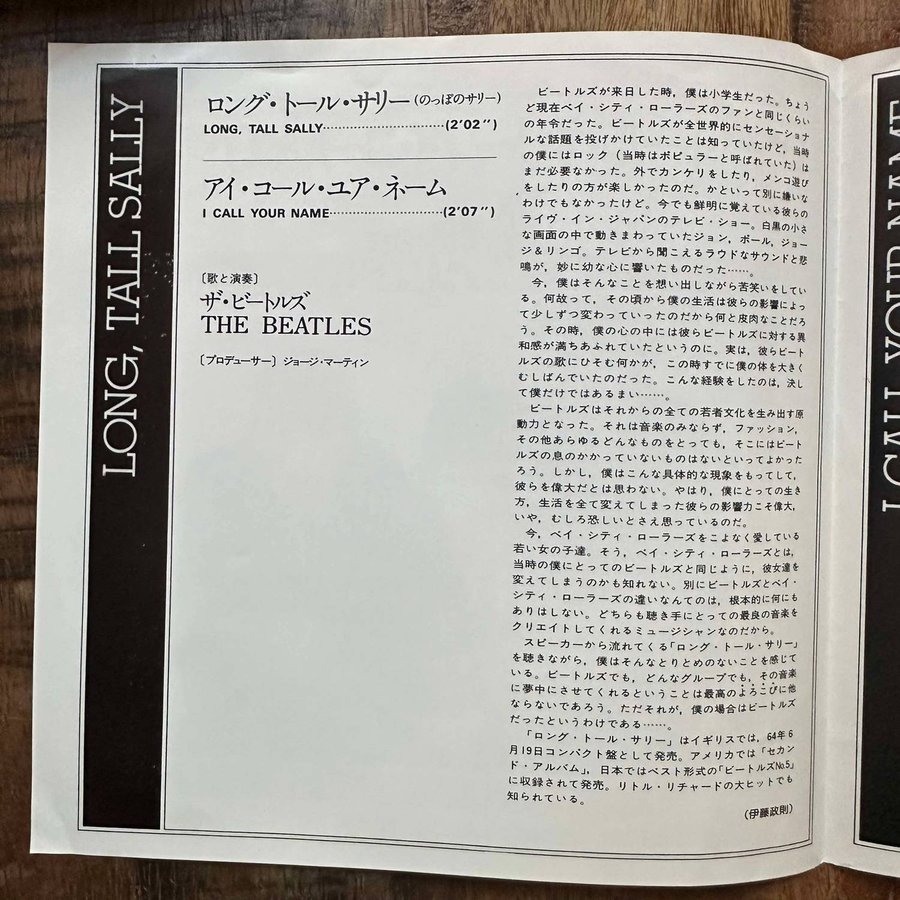 LONG, TALL SALLY
ロング・トール・サリー(のっぽのサリー)
LONG, TALL SALLY…………………………(2'02")
アイ・コール・ユア・ネーム
I CALL YOUR NAME………………………(2'07")
〔歌と演奏〕
ザ・ビートルズ
THE BEATLES
〔プロデューサー〕ジョージ・マーティン
ビートルズが来日した時，僕は小学生だった。ちょう
ど現在ベイ・シティ・ローラーズのファンと同じくらい
の年令だった。ビートルズが全世界的にセンセーショナ
ルな話題を投げかけていたことは知っていたけど，当時
の僕にはロック（当時はポピュラーと呼ばれていた）は
まだ必要なかった。外でカンケリをしたり，メンコ遊び
をしたりの方が楽しかったのだ。かといって別に嫌いな
わけでもなかったけど。今でも鮮明に覚えている彼らの
ライヴ・イン・ジャパンのテレビ・ショー。白黒の小さ
な画面の中で動きまわっていたジョン，ポール，ジョー
ジ＆リンゴ。テレビから聞こえるラウドなサウンドと悲
鳴が，妙に幼な心に響いたものだった……。
今，僕はそんなことを想い出しながら苦笑いをしてい
る。何故って，その頃から僕の生活は彼らの影響によっ
て少しずつ変わっていったのだから何と皮肉なことだろ
う。その時，僕の心の中には彼らビートルズに対する異
和感が満ちあふれていたというのに。実は，彼らビート
ルズの歌にひそむ何かが，この時すでに僕の体を大きく
むしばんでいたのだった。こんな経験をしたのは，決し
て僕だけではあるまい……。
ビートルズはそれからの全ての若者文化を生み出す原
動力となった。それは音楽のみならず，ファッション，
その他あらゆるどんなものをとっても，そこにはビート
ルズの息のかかっていないものはないといってよかった
ろう。しかし，僕はこんな具体的な現象をもってして，
彼らを偉大だとは思わない。やはり，僕にとっての生き
方，生活を全て変えてしまった彼らの影響力こそ偉大，
いや，むしろ恐しいとさえ思っているのだ。
今，ベイ・シティ・ローラーズをこよなく愛している
若い女の子達。そう，ベイ・シティ・ローラーズとは，
当時の僕にとってのビートルズと同じように，彼女達を
変えてしまうのかも知れない。別にビートルズとベイ・
シティ・ローラーズの違いなんてのは，根本的に何にも
ありはしない。どちらも聴き手にとっての最良の音楽を
クリエイトしてくれるミュージシャンなのだから。
スピーカーから流れてくる「ロング・トール・サリー」
を聴きながら，僕はそんなとりとめのないことを感じて
いる。ビートルズでも，どんなグループでも，その音楽
に夢中にさせてくれるということは最高のよろこびに他
ならないであろう。ただそれが，僕の場合はビートルズ
だったというわけである……。
「ロング・トール・サリー」はイギリスでは，64年6
月19日コンパクト盤として発売。アメリカでは「セカン
ド・アルバム」，日本ではベスト形式の「ビートルズNo.5」
に収録されて発売。リトル・リチャードの大ヒットでも
知られている。
(伊藤政則)
I CALL YOUR NAME